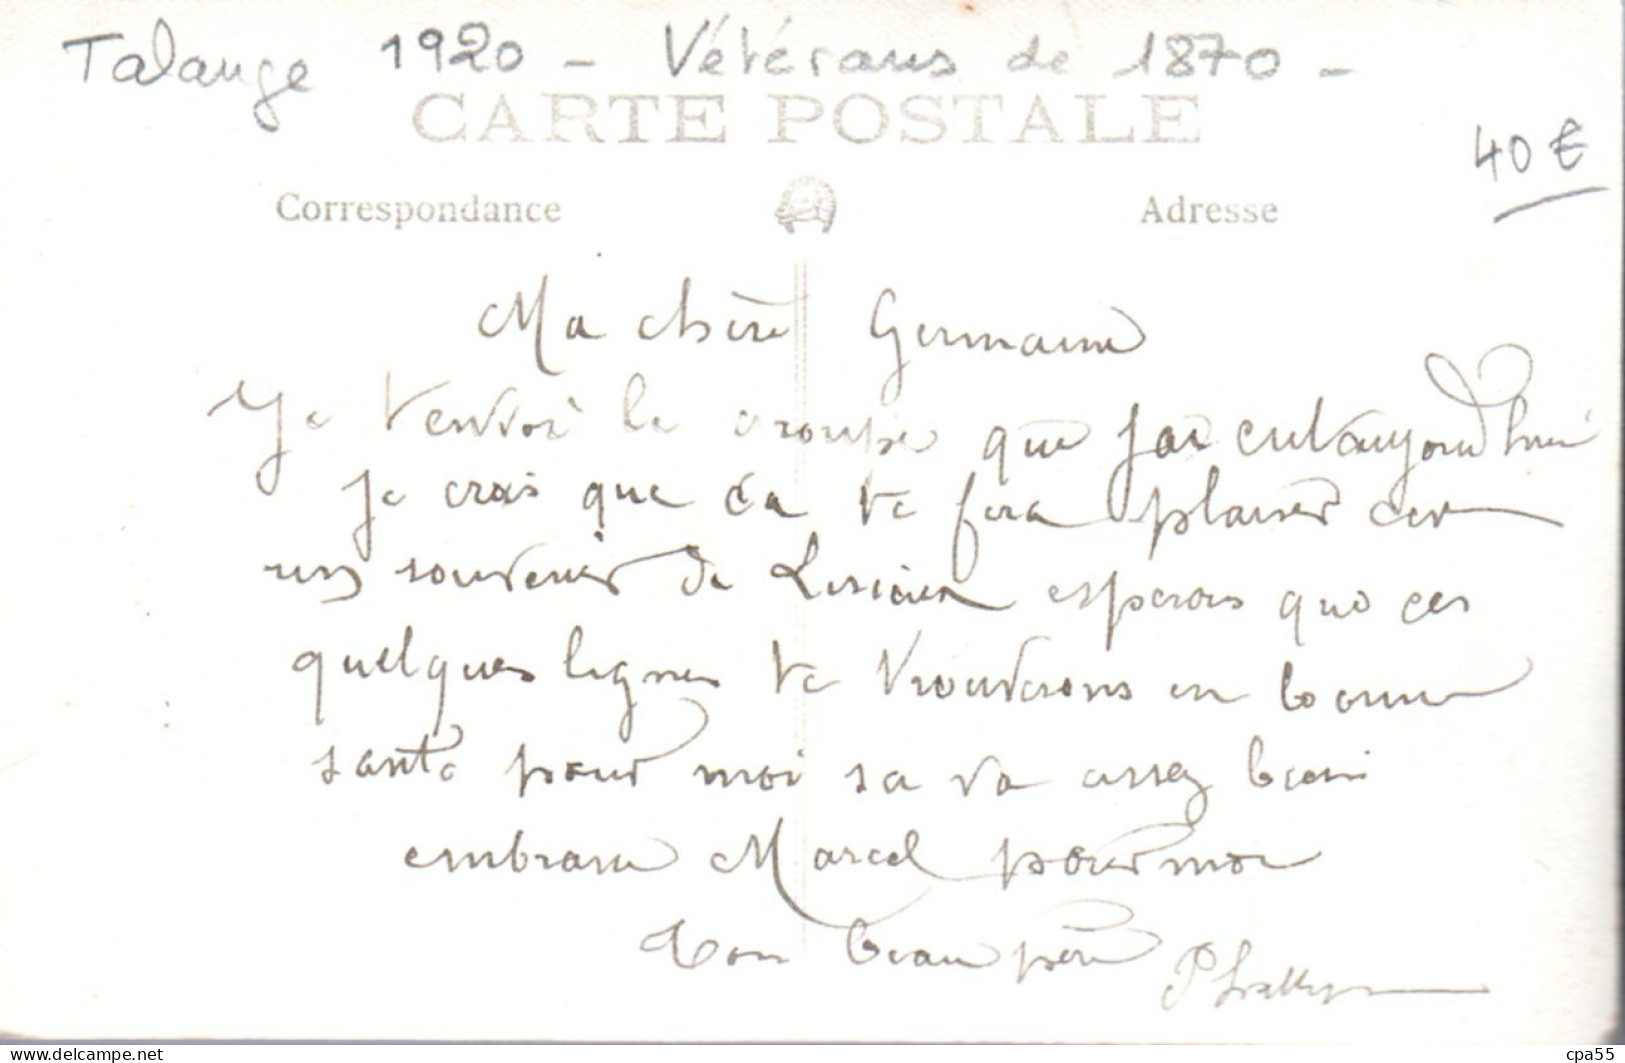 Talange 1920 - Vétérans de 1870 -
CARTE POSTALE
40 €
Correspondance
Adresse
Ma chère Germaine
Je t'envoi le groupe que jai eut aujourd'hui
je crois que ça te fera plaisir car
un souvenir de espérons que ces
quelques lignes te trouverons en bonne
santé pour moi sa va assez bien
embrasse Marcel pour moi
Ton beau père
delcampe.net
cpa55